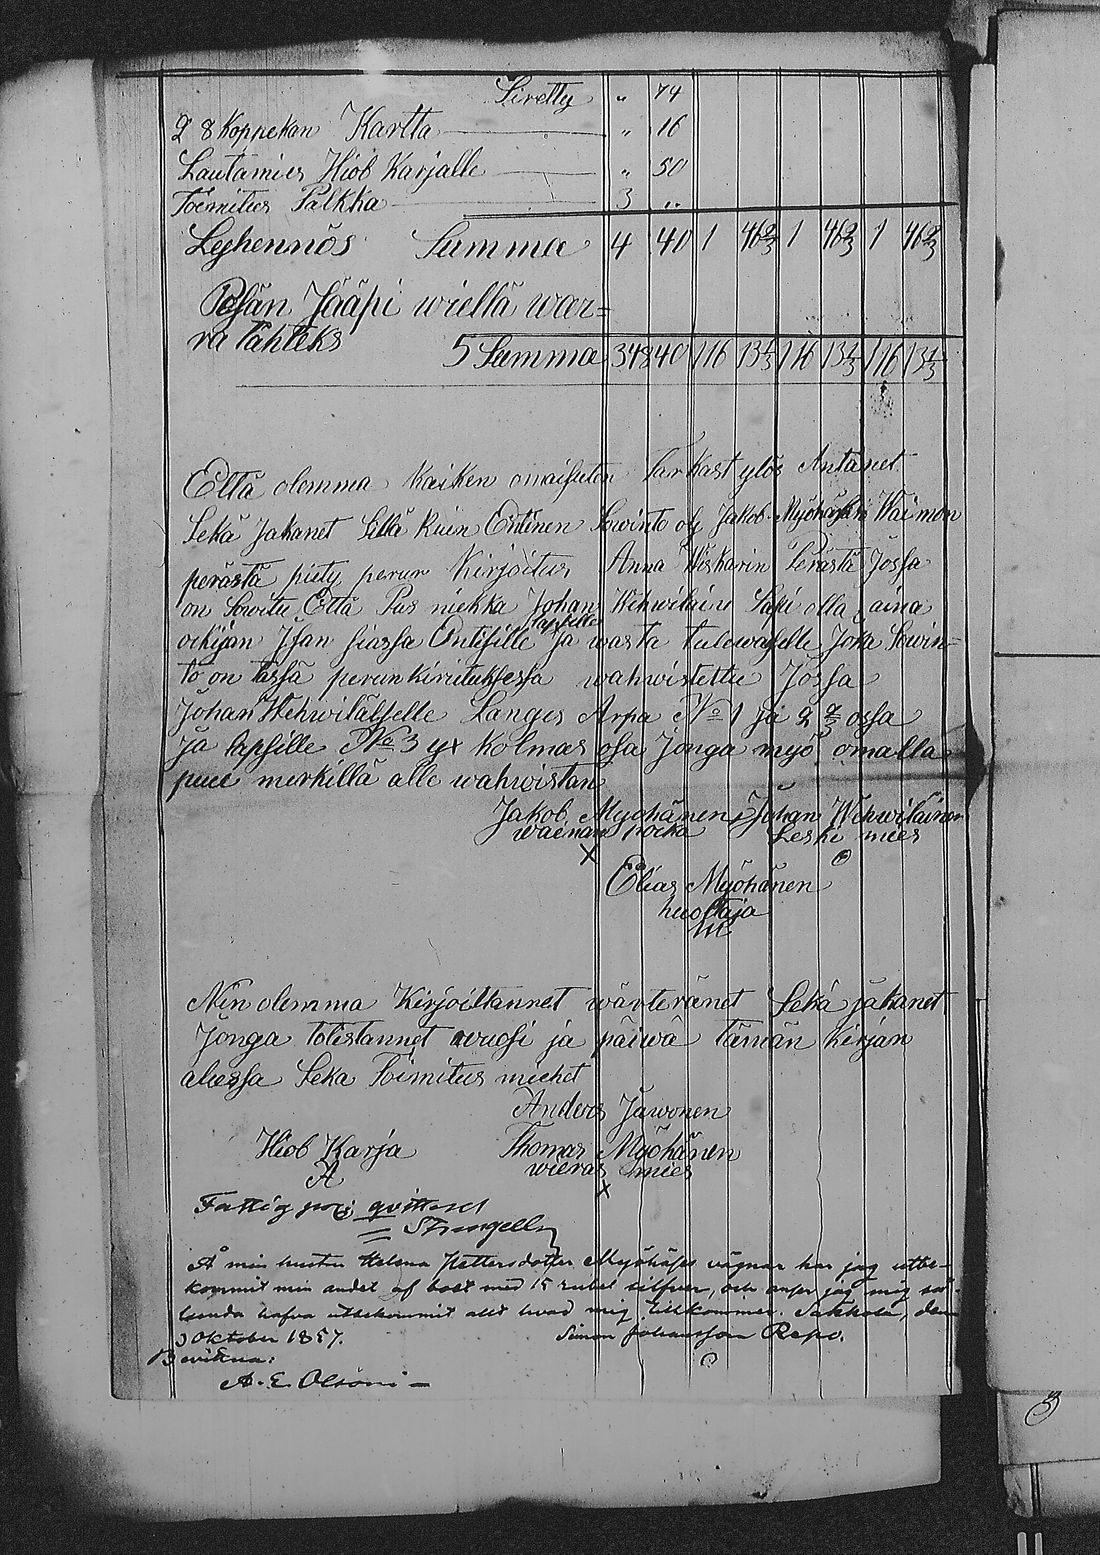 Siretty " 74
2 8 Koppekan Kartta " 16
Lautamies Hiob Karjalle " 50
Toimitus Palkka 3 "
Lyhennös Summa 4 40 1 46 2/3 1 46 2/3 1 46 2/3
Pesän Jääpi wiellä war=
ra tähteks 5 Summa 348 40 116 13 1/3 116 13 1/3 116 13 1/3
Että olemma Kaiken omaisuten Tarkast ylös Antanet
Sekä Jakanet Sillä Kuin Entinen Sowinto oly Jakob Myöhäsen Waimon
perästä piety perun Kirjoitus Anna Hiskarin Perästä Jossa
on Sowitu Että Pus niekka Johan Wehwiläin Sapi olla aina
oikijan Isän siassa Entisille lapsille Ja wasta tulewaselle Joka Sowin=
to on tässä perunkirjituksessa wahwistettu Jossa
Johan Wehwilälselle Langes Arpa No 1 ja 2 2/3 ossa
Ja lapsille No 3 yx Kolmas osa Jonga myö omalla
puu merkillä alle wahwistan
Jakob Myöhänen Johan Wehwiläinen
wainan poika Leski mies
X
Elias Myöhänen
huoltaja
Nin olemma Kirjoittannet wärteranet Sekä jakanet
Jonga totistannet wuosi ja päiwä tämän kirjan
alussa Seka Toimitus miehet
Anders Jäwonen
Hiob Karja Thomas Myöhänen
A wieras mies
X
Fattig proc: qvitterad
Strengell
Å min hustru Helena Pettersdotter Myöhäses vägnar har jag utbe-
kommit min andel af boet med 15 rubel silfver, och anser jag mig så-
lunda hafva utbekommit allt hvad mig tillkommer. Sakkola, den
3 Oktober 1857. Simon Johansson Repo.
Bevittna:
A. E. Olsoni